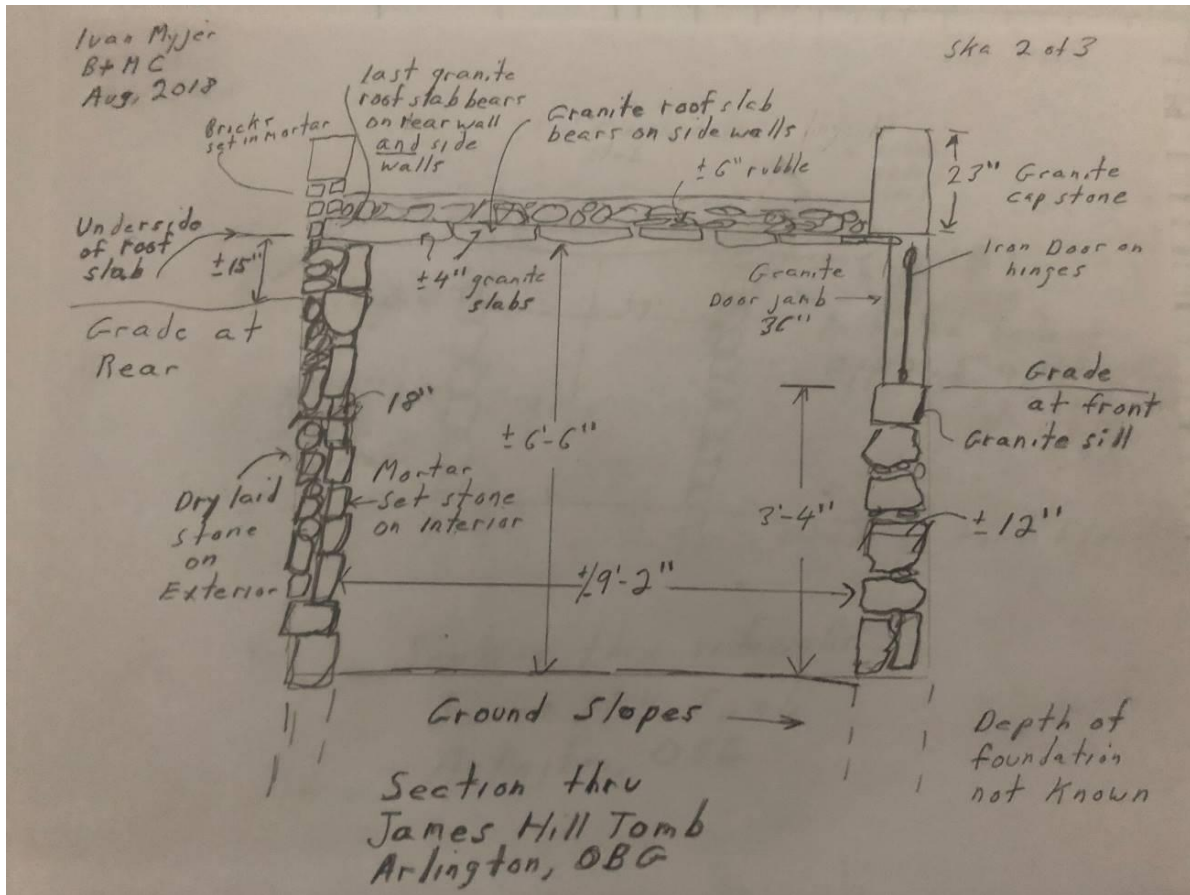 Ivan Myjer
B+MC
Aug, 2018
SKa 2 of 3
Bricks
set in mortar
last granite
roof slab bears
on rear wall
and side
walls
Granite roof slab
bears on side walls
± 6" rubble
23" Granite
cap stone
Underside
of roof
slab
± 15"
± 4" granite
slabs
Granite
Door jamb
36"
Iron Door on
hinges
Grade at
Rear
Grade
at front
Granite sill
18"
± 6'-6"
Dry laid
stone
on
Exterior
Mortar
set stone
on Interior
3'-4"
± 12"
± 9'-2"
Ground Slopes
Depth of
foundation
not Known
Section thru
James Hill Tomb
Arlington, OBG